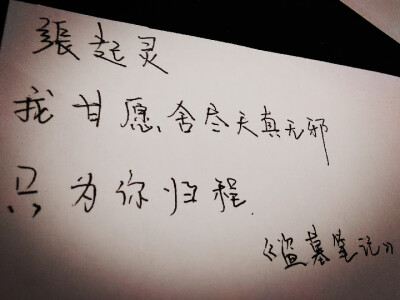 張起灵
我甘愿舍尽天真无邪
只为你归程.
《盗墓笔记》